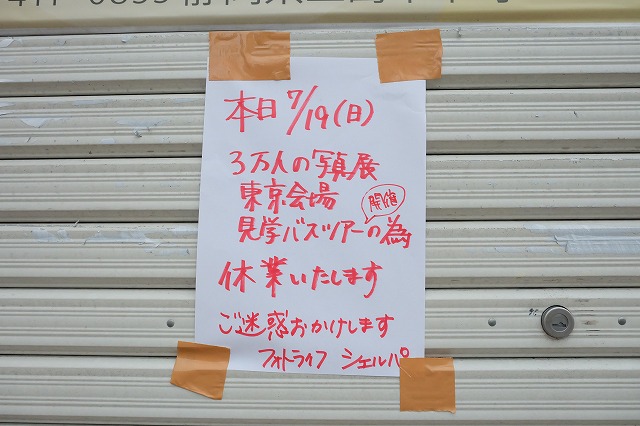 本日 7/19(日)
3万人の写真展
東京会場
見学バスツアーの開催為
休業いたします
ご迷惑おかけします
フォトライフ シェルパ